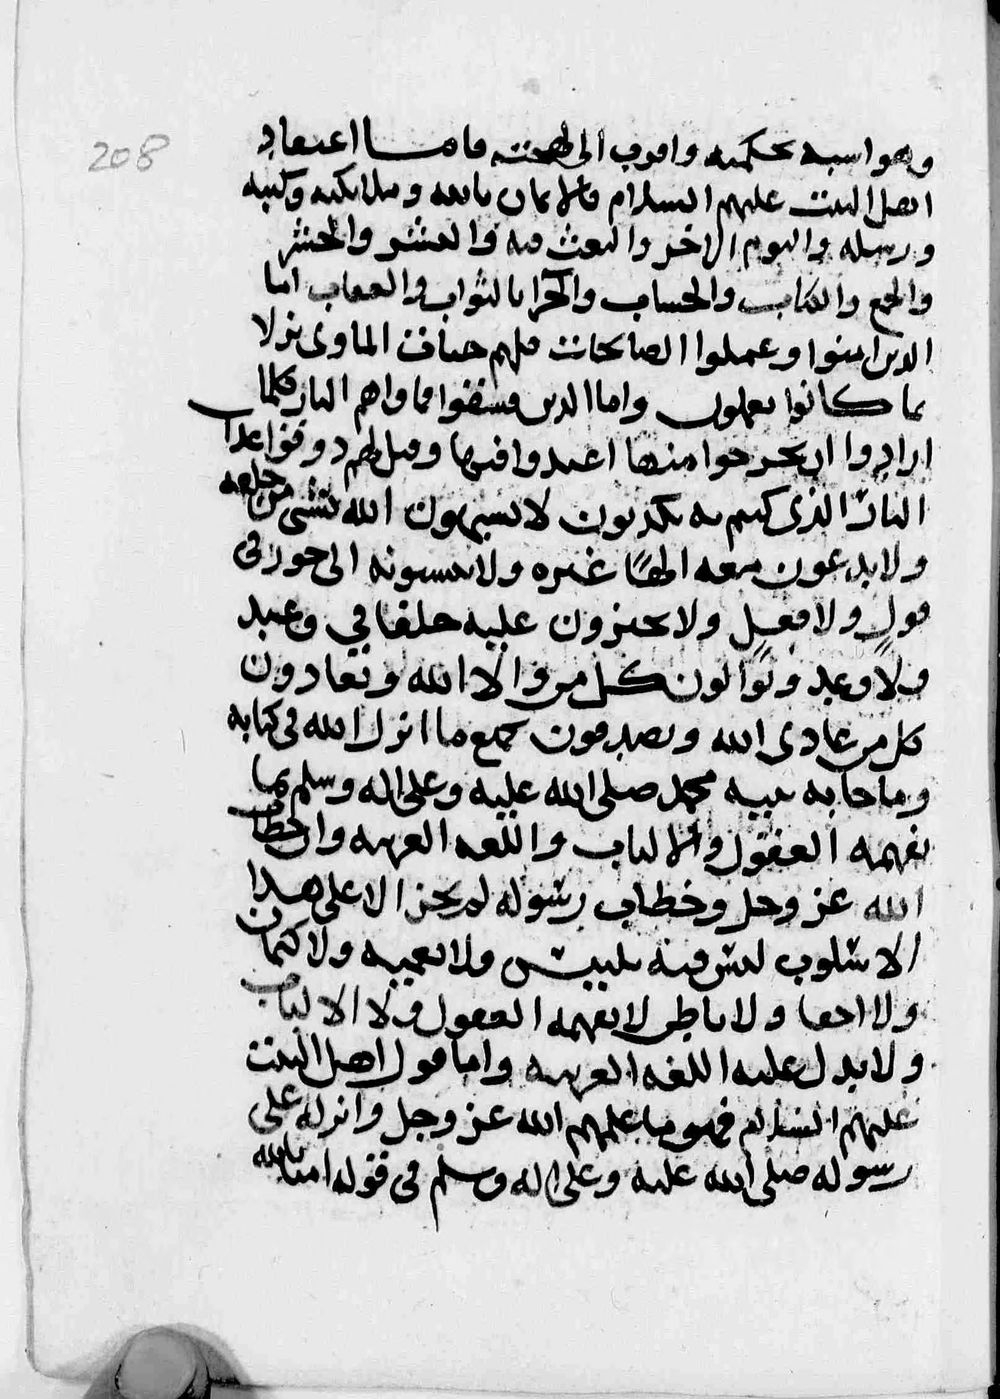 208
وهو اشبه بحكمته واقرب الى فاما اعتقاد
اهل البيت عليهم السلام فالايمان بالله وملائكته وكتبه
ورسله واليوم الاخر والبعث فيه والنشر والحشر
والجمع والكتاب والحساب والجزا بالثواب والعقاب اما
الذين امنوا وعملوا الصالحات فلهم جنات الماوى نزلا
بما كانوا يعملون واما الذين فسقوا فماواهم النار كلما
ارادوا ان يخرجوا منها اعيدوا فيها وقيل لهم ذوقوا عذاب
النار الذى كنتم به تكذبون لا يشبهون الله بشى من خلقه
ولا يدعون معه الها غيره ولا ينسبونه الى جور فى
قول ولا فعل ولا يجيزون عليه خلفا في وعيد
ولا وعد ويوالون كل من والا الله ويعادون
كل من عادى الله ويصدقون بجميع ما انزل الله فى كتابه
وما جا به نبيه محمد صلى الله عليه وعلى اله وسلم بما
تفهمه العقول والالباب واللغه العربيه وان خطاب
الله عز وجل وخطاب رسوله لم يجز الا على هذا
الاسلوب ليس فيه تلبيس ولا تعميه ولا كتمان
ولا اخفا ولا باطن لا تفهمه العقول ولا الالباب
ولا يدل عليه اللغه العربيه واما قول اهل البيت
عليهم السلام فهو ما علمهم الله عز وجل وانزله على
رسوله صلى الله عليه وعلى اله وسلم فى قوله امنا بالله